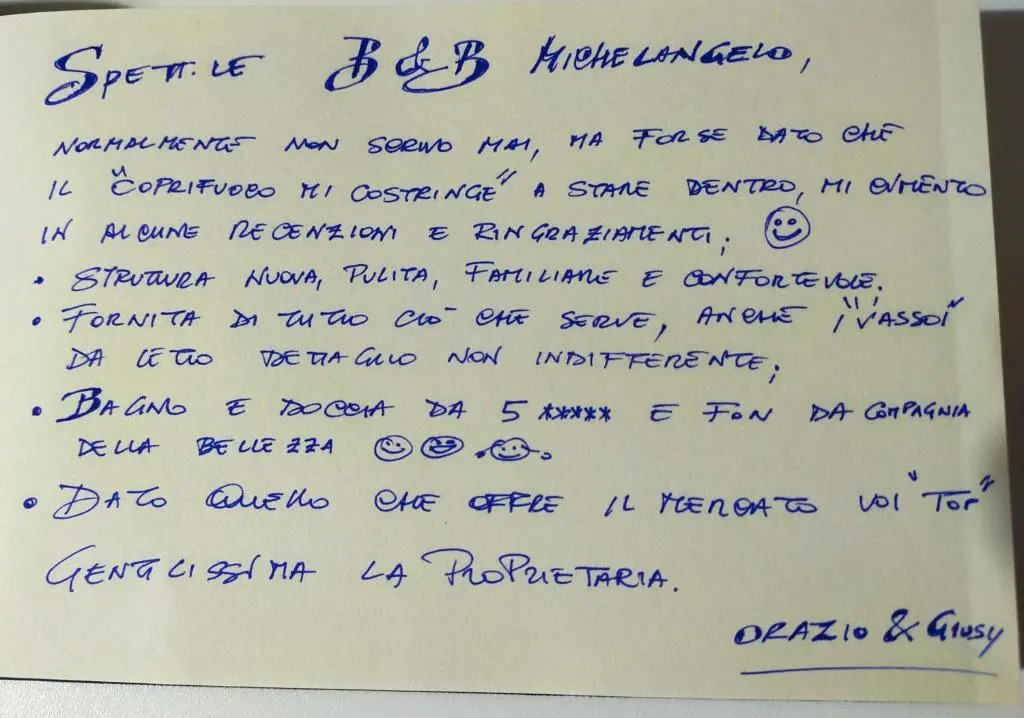 SPETT.LE B & B MICHELANGELO,
NORMALMENTE NON SCRIVO MAI, MA FORSE DATO CHE
IL "COPRIFUOCO MI COSTRINGE" A STARE DENTRO, MI CIMENTO
IN ALCUNE RECENZIONI E RINGRAZIAMENTI; ☺
• STRUTTURA NUOVA, PULITA, FAMILIARE E CONFORTEVOLE.
• FORNITA DI TUTTO CIÒ CHE SERVE, ANCHE I "VASSOI"
DA LETTO DETTAGLIO NON INDIFFERENTE;
• BAGNO E DOCCIA DA 5 ***** E FON DA COMPAGNIA
DELLA BELLEZZA
• DATO QUELLO CHE OFFRE IL MERCATO VOI "TOP"
GENTILISSIMA LA PROPRIETARIA.
ORAZIO & GIUSY